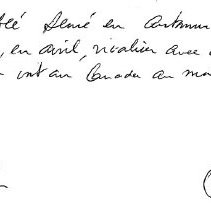 blé semé en automne
, en avril, rivaliser avec
ont au Canada au